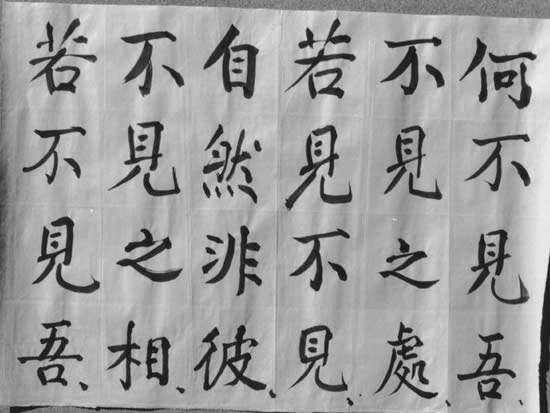 何不見吾、
不見之處、
若見不見、
自然非彼、
不見之相、
若不見吾、